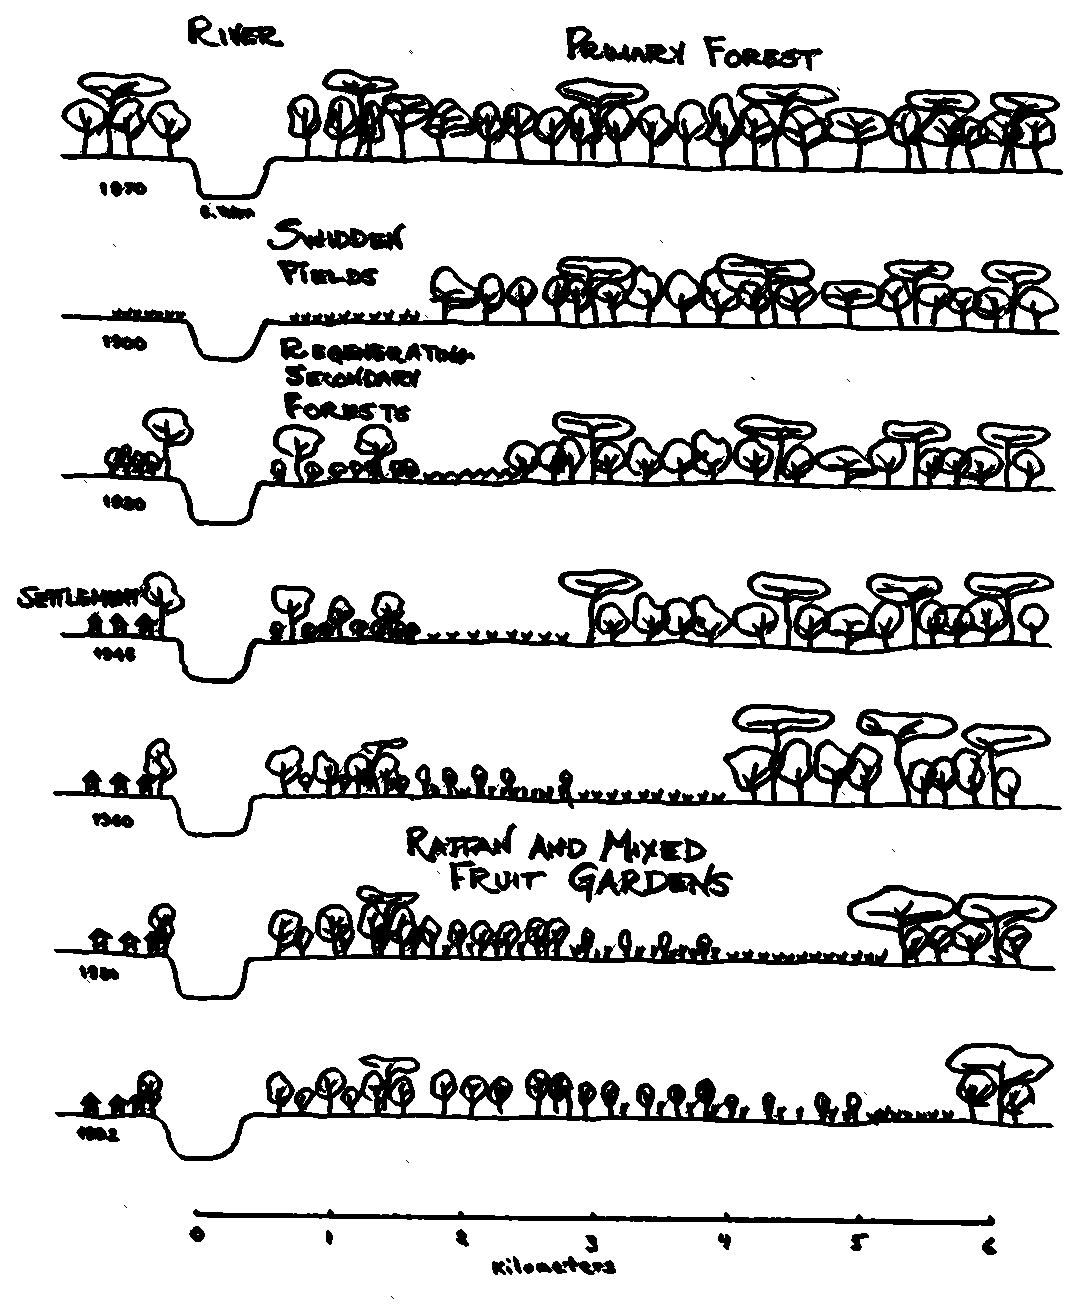 RIVER
PRIMARY FOREST
1870
SWIDDEN
FIELDS
1900
REGENERATING
SECONDARY
FORESTS
1920
SETTLEMENT
1945
1960
RATTAN AND MIXED
FRUIT GARDENS
1980
1992
0 1 2 3 4 5 6
Kilometers